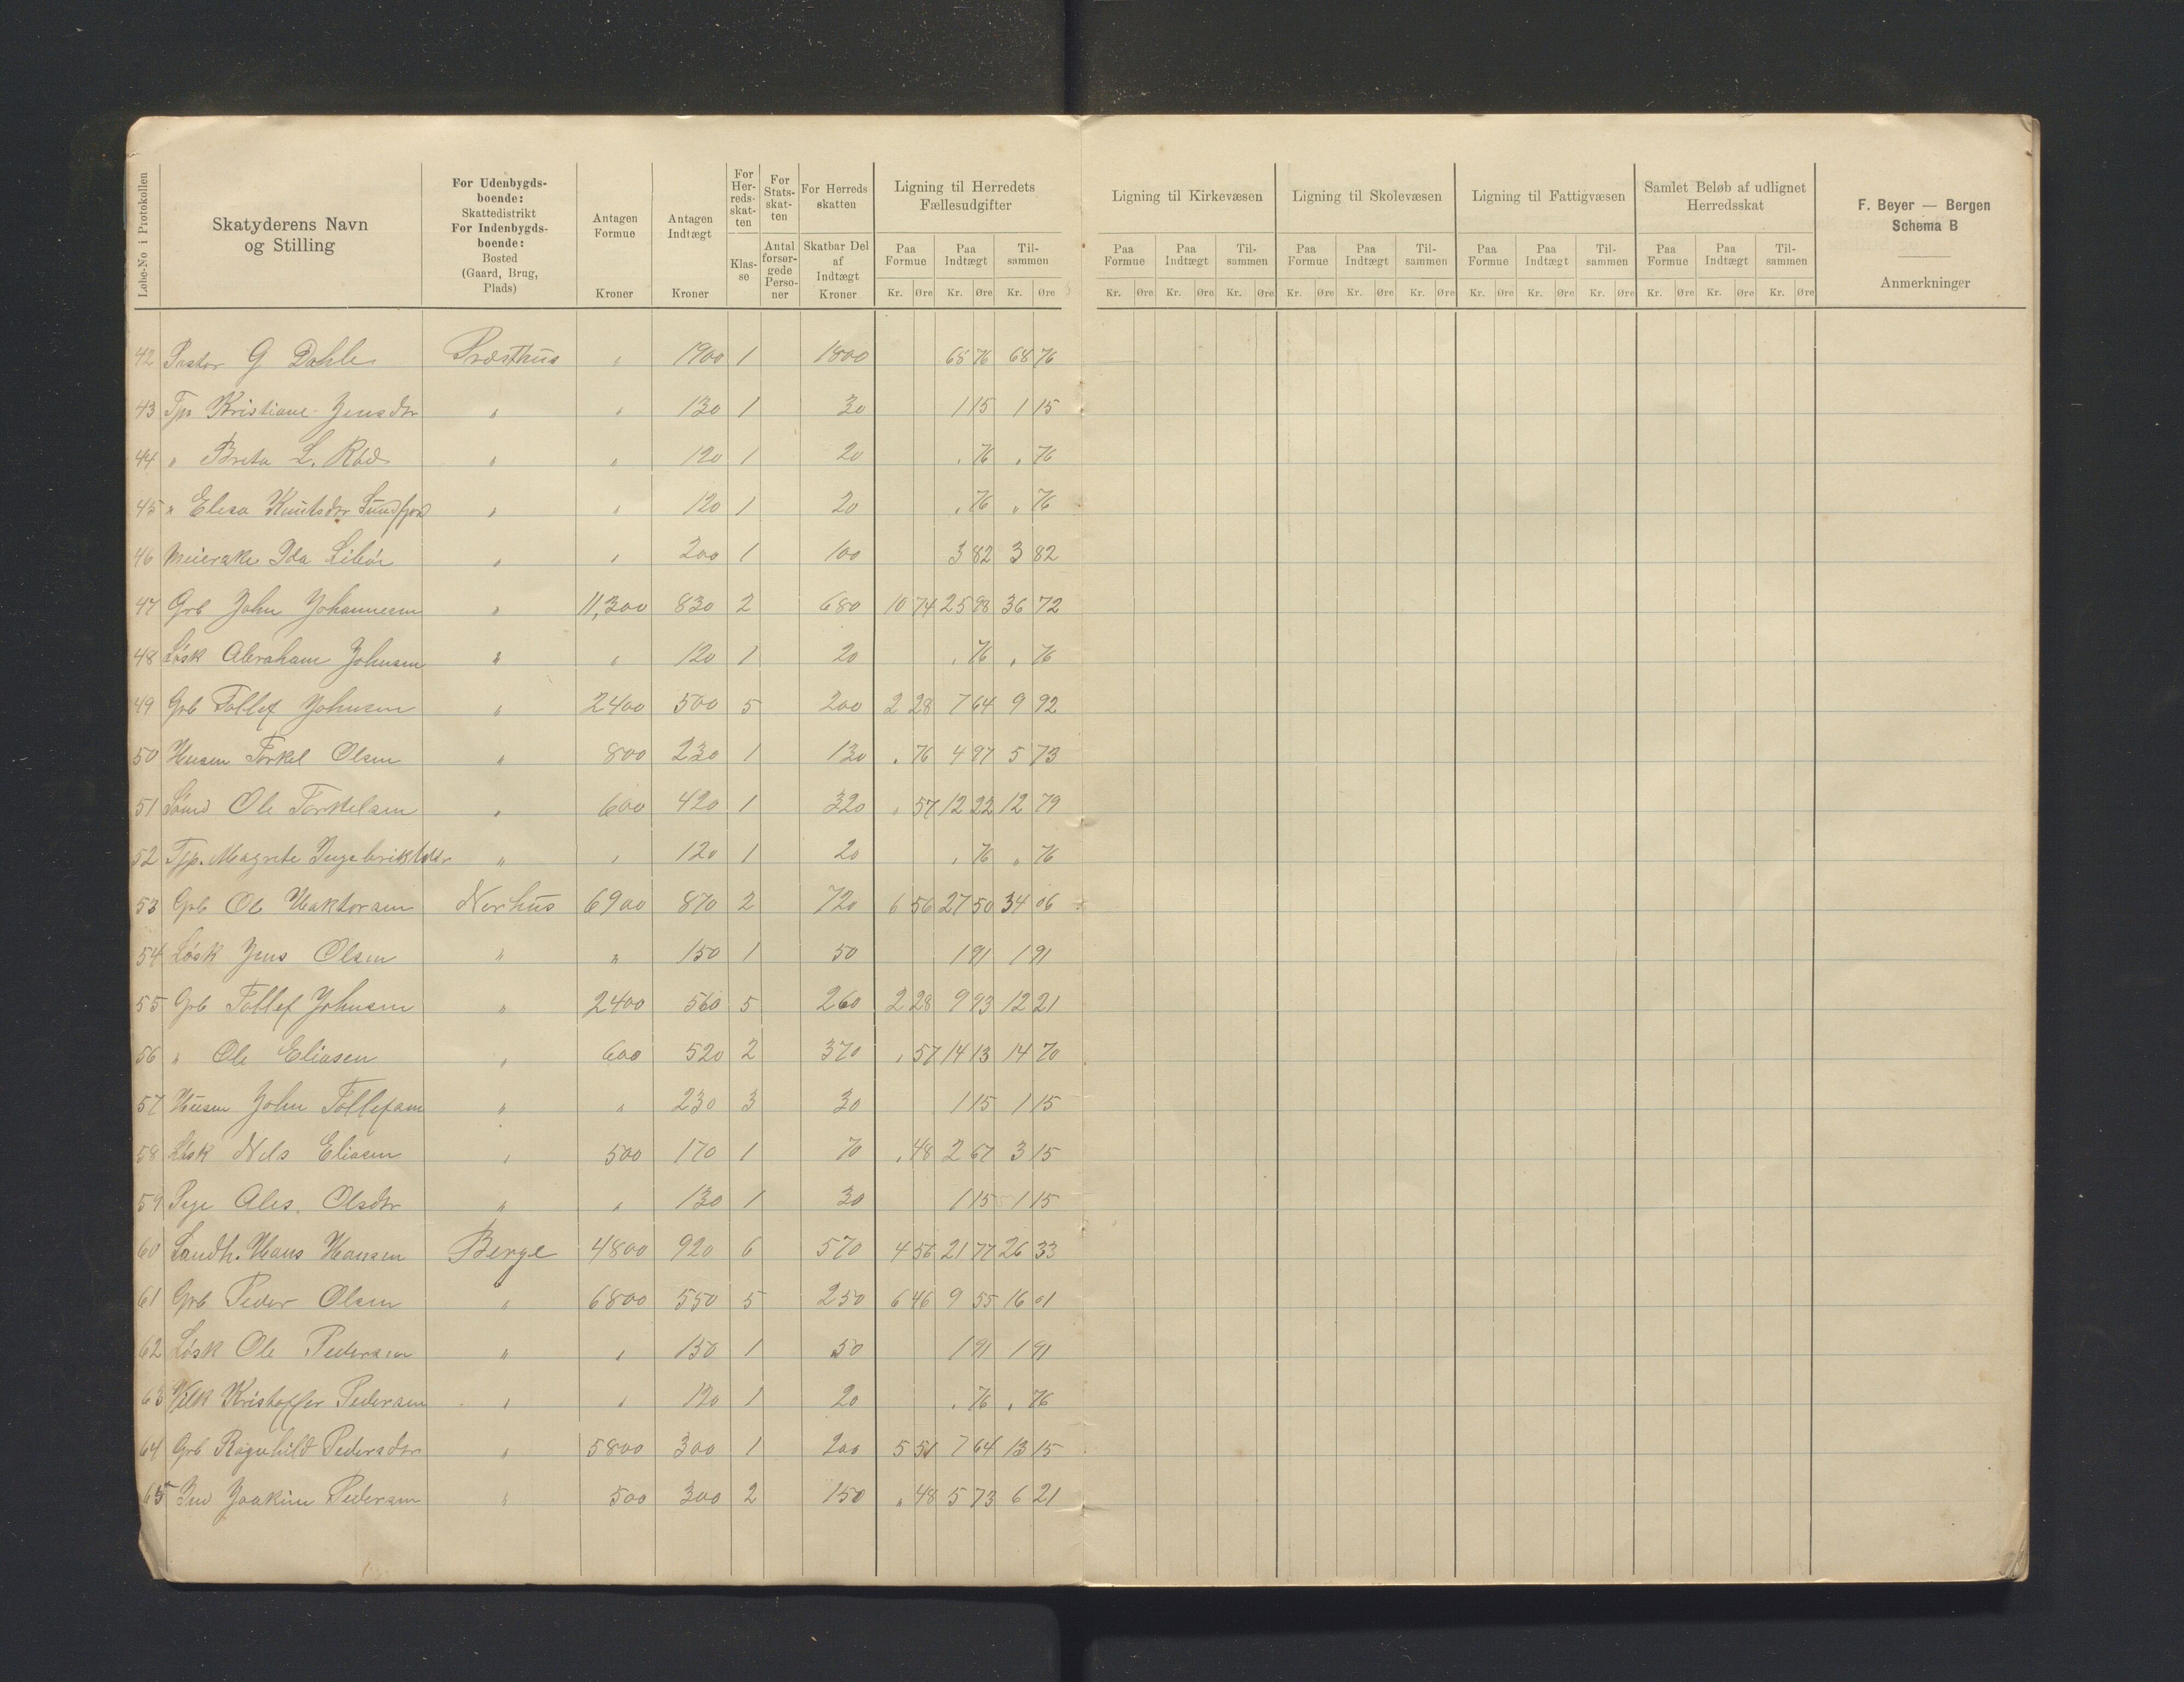 Løbe-No i Protokollen
Skatyderens Navn og Stilling
For Udenbygdsboende: Skattedistrikt For Indenbygdsboende: Bosted (Gaard, Brug, Plads)
Antagen Formue Kroner
Antagen Indtægt Kroner
For Herredsskatten Klasse
For Statsskatten Antal forsørgede Personer
For Herredsskatten Skatbar Del af Indtægt Kroner
Ligning til Herredets Fællesudgifter
Paa Formue Paa Indtægt Tilsammen
Kr. Øre Kr. Øre Kr. Øre
Ligning til Kirkevæsen
Paa Formue Paa Indtægt Tilsammen
Kr. Øre Kr. Øre Kr. Øre
Ligning til Skolevæsen
Paa Formue Paa Indtægt Tilsammen
Kr. Øre Kr. Øre Kr. Øre
Ligning til Fattigvæsen
Paa Formue Paa Indtægt Tilsammen
Kr. Øre Kr. Øre Kr. Øre
Samlet Beløb af udlignet Herredsskat
Paa Formue Paa Indtægt Tilsammen
Kr. Øre Kr. Øre Kr. Øre
F. Beyer — Bergen
Schema B
Anmerkninger
42 Pastor G Dahle Præsthus " 1900 1 1800 68 76 68 76
43 Tp Kristiane Jensdtr " " 130 1 30 1 15 1 15
44 " Brita L. " " 120 1 20 " 76 " 76
45 " Elisa Knutsdtr Sundfjord " " 120 1 20 " 76 " 76
46 Meierske Ida " " 200 1 100 3 82 3 82
47 Grb John Johannesen " 11,300 830 2 680 10 74 25 98 36 72
48 Løsk Abraham Johnsen " " 120 1 20 " 76 " 76
49 Grb Tollef Johnsen " 2400 500 5 200 2 28 7 64 9 92
50 Husm Torkel Olsen " 800 230 1 130 " 76 4 97 5 73
51 Ole Torkelsen " 600 420 1 320 " 57 12 22 12 79
52 Tjp. Magrete Ingebriktsdtr " " 120 1 20 " 76 " 76
53 Grb Ole Haktorsen Nerhus 6900 870 2 720 6 56 27 50 34 06
54 Løsk Jens Olsen " " 150 1 50 1 91 1 91
55 Grb Tollef Johnsen " 2400 560 5 260 2 28 9 93 12 21
56 " Ole Eliasen " 600 520 2 370 " 57 14 13 14 70
57 Husm John Tollefsen " " 230 3 30 1 15 1 15
58 Løsk Nils Eliasen " 500 170 1 70 " 48 2 67 3 15
59 Pige Ales. Olsdtr " " 130 1 30 1 15 1 15
60 Landh. Hans Hansen Berge 4800 920 6 570 4 56 21 77 26 33
61 Grb Peder Olsen " 6800 550 5 250 6 46 9 55 16 01
62 Løsk Ole Pedersen " " 150 1 50 1 91 1 91
63 Kristoffer Pedersen " " 120 1 20 " 76 " 76
64 Grb Ragnhild Pedersdtr " 5800 300 1 200 5 51 7 64 13 15
65 Joakim Pedersen " 500 300 2 150 " 48 5 73 6 21